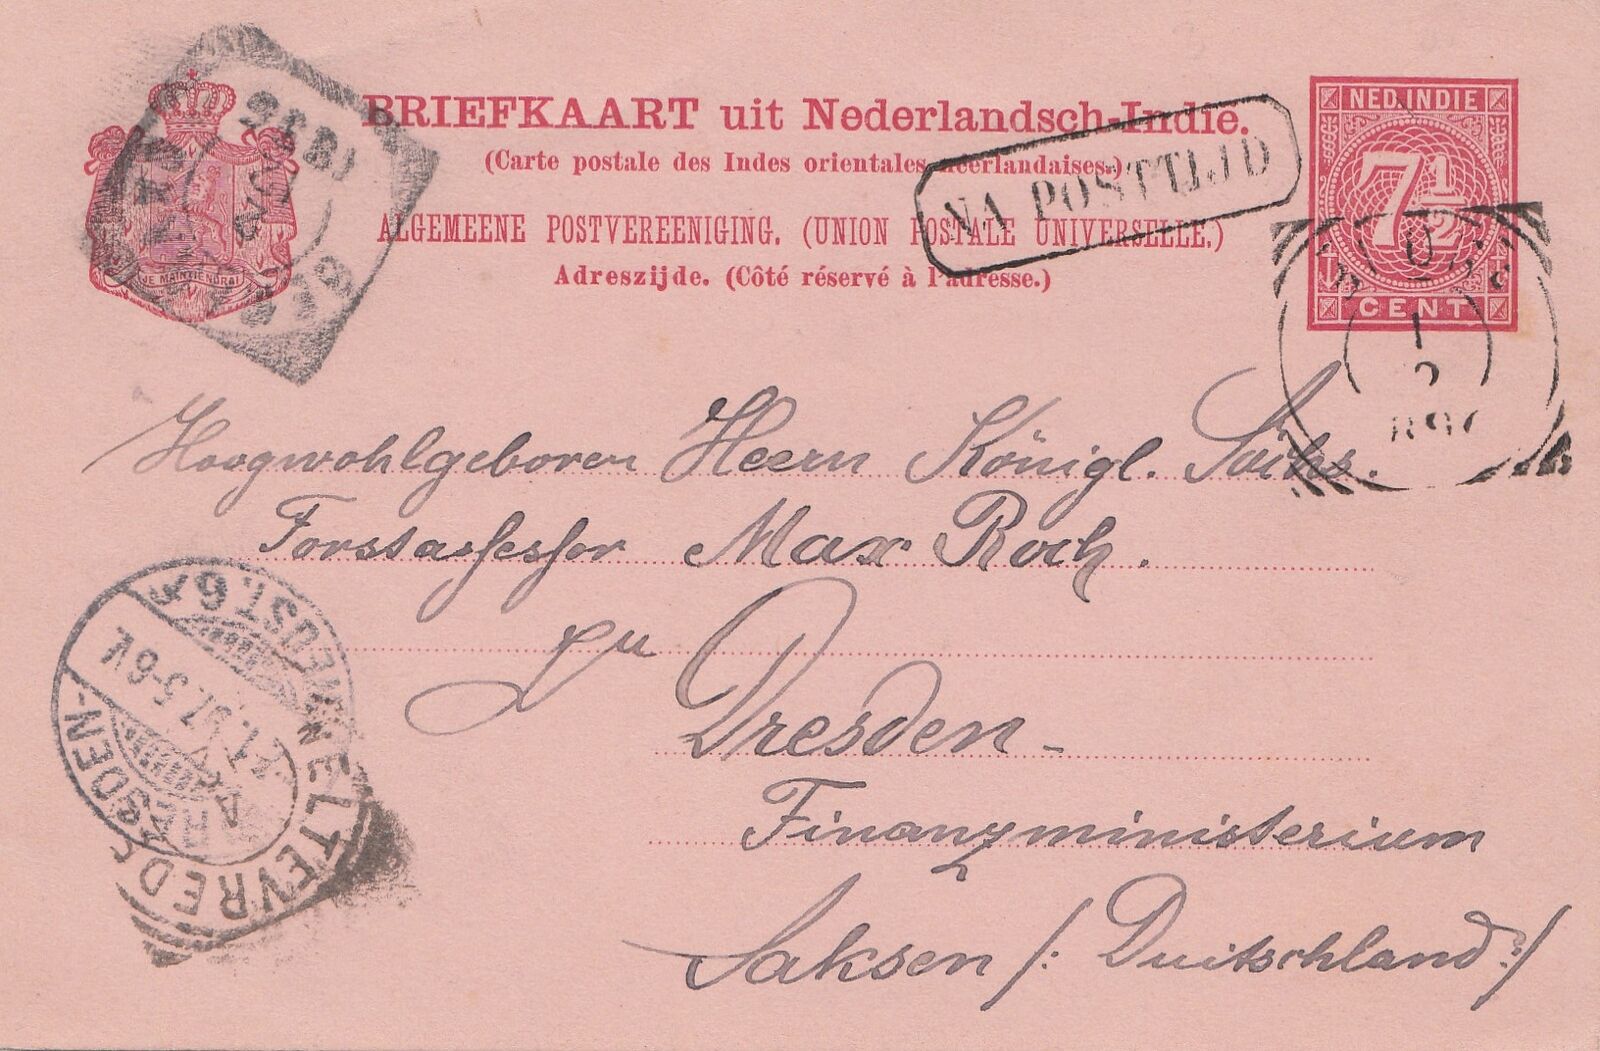 BRIEFKAART uit Nederlandsch-Indie.
(Carte postale des Indes orientales néerlandaises.)
ALGEMEENE POSTVEREENIGING. (UNION POSTALE UNIVERSELLE.)
Adreszijde. (Côté réservé à l'adresse.)
JE MAINTIENDRAI
NA POSTTIJD
NED. INDIE
7 1/2
CENT
Hoogwohlgeboren Heern Königl. Sächs.
Forstassessor Max Roch.
zu
Dresden -
Finanzministerium
Saksen /: Duitschland :/
DRESDEN-NEUST. 6
5-6 V.
WELTEVREDEN